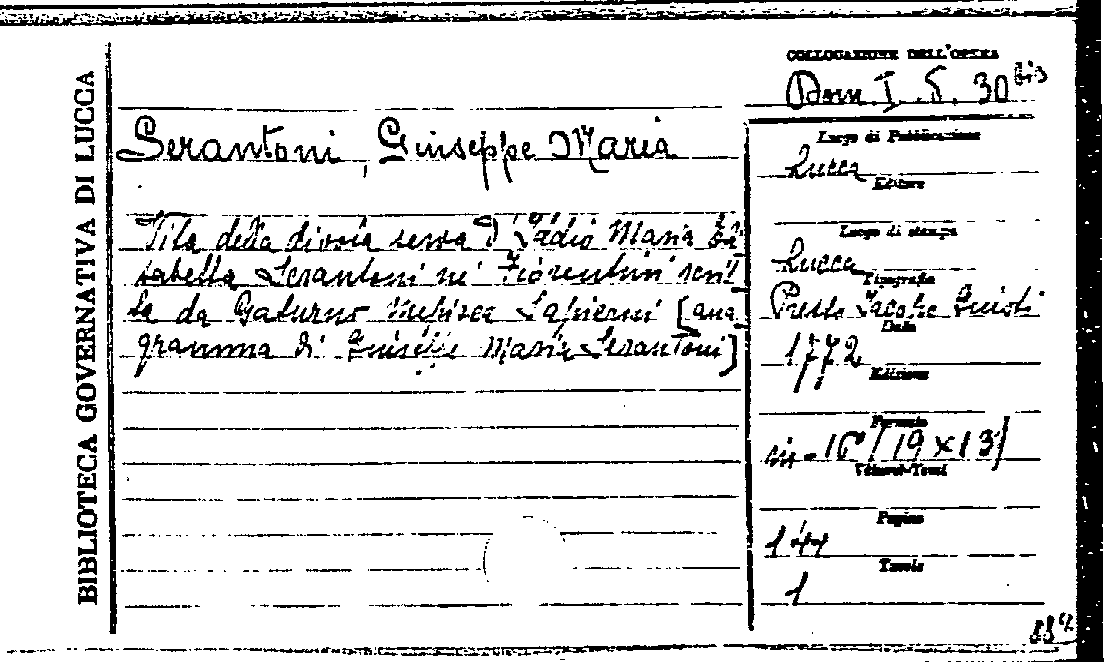 BIBLIOTECA GOVERNATIVA DI LUCCA
COLLOCAZIONE DELL'OPERA
Dom. I. 5. 30 bis
Serantoni, Giuseppe Maria
Vita della divota serva di Maria Eli
sabetta Serantoni ne' Fiorentini scrit
ta da Saturno Sapierni [ana
gramma di Giuseppe Maria Serantoni]
Luogo di Pubblicazione
Lucca
Editore
Luogo di stampa
Lucca
Tipografia
Presso Jacopo Giusti
Data
1772
Edizione
Formato
in-16° (19 x 13)
Volumi-Tomi
Pagine
144
Tavole
1